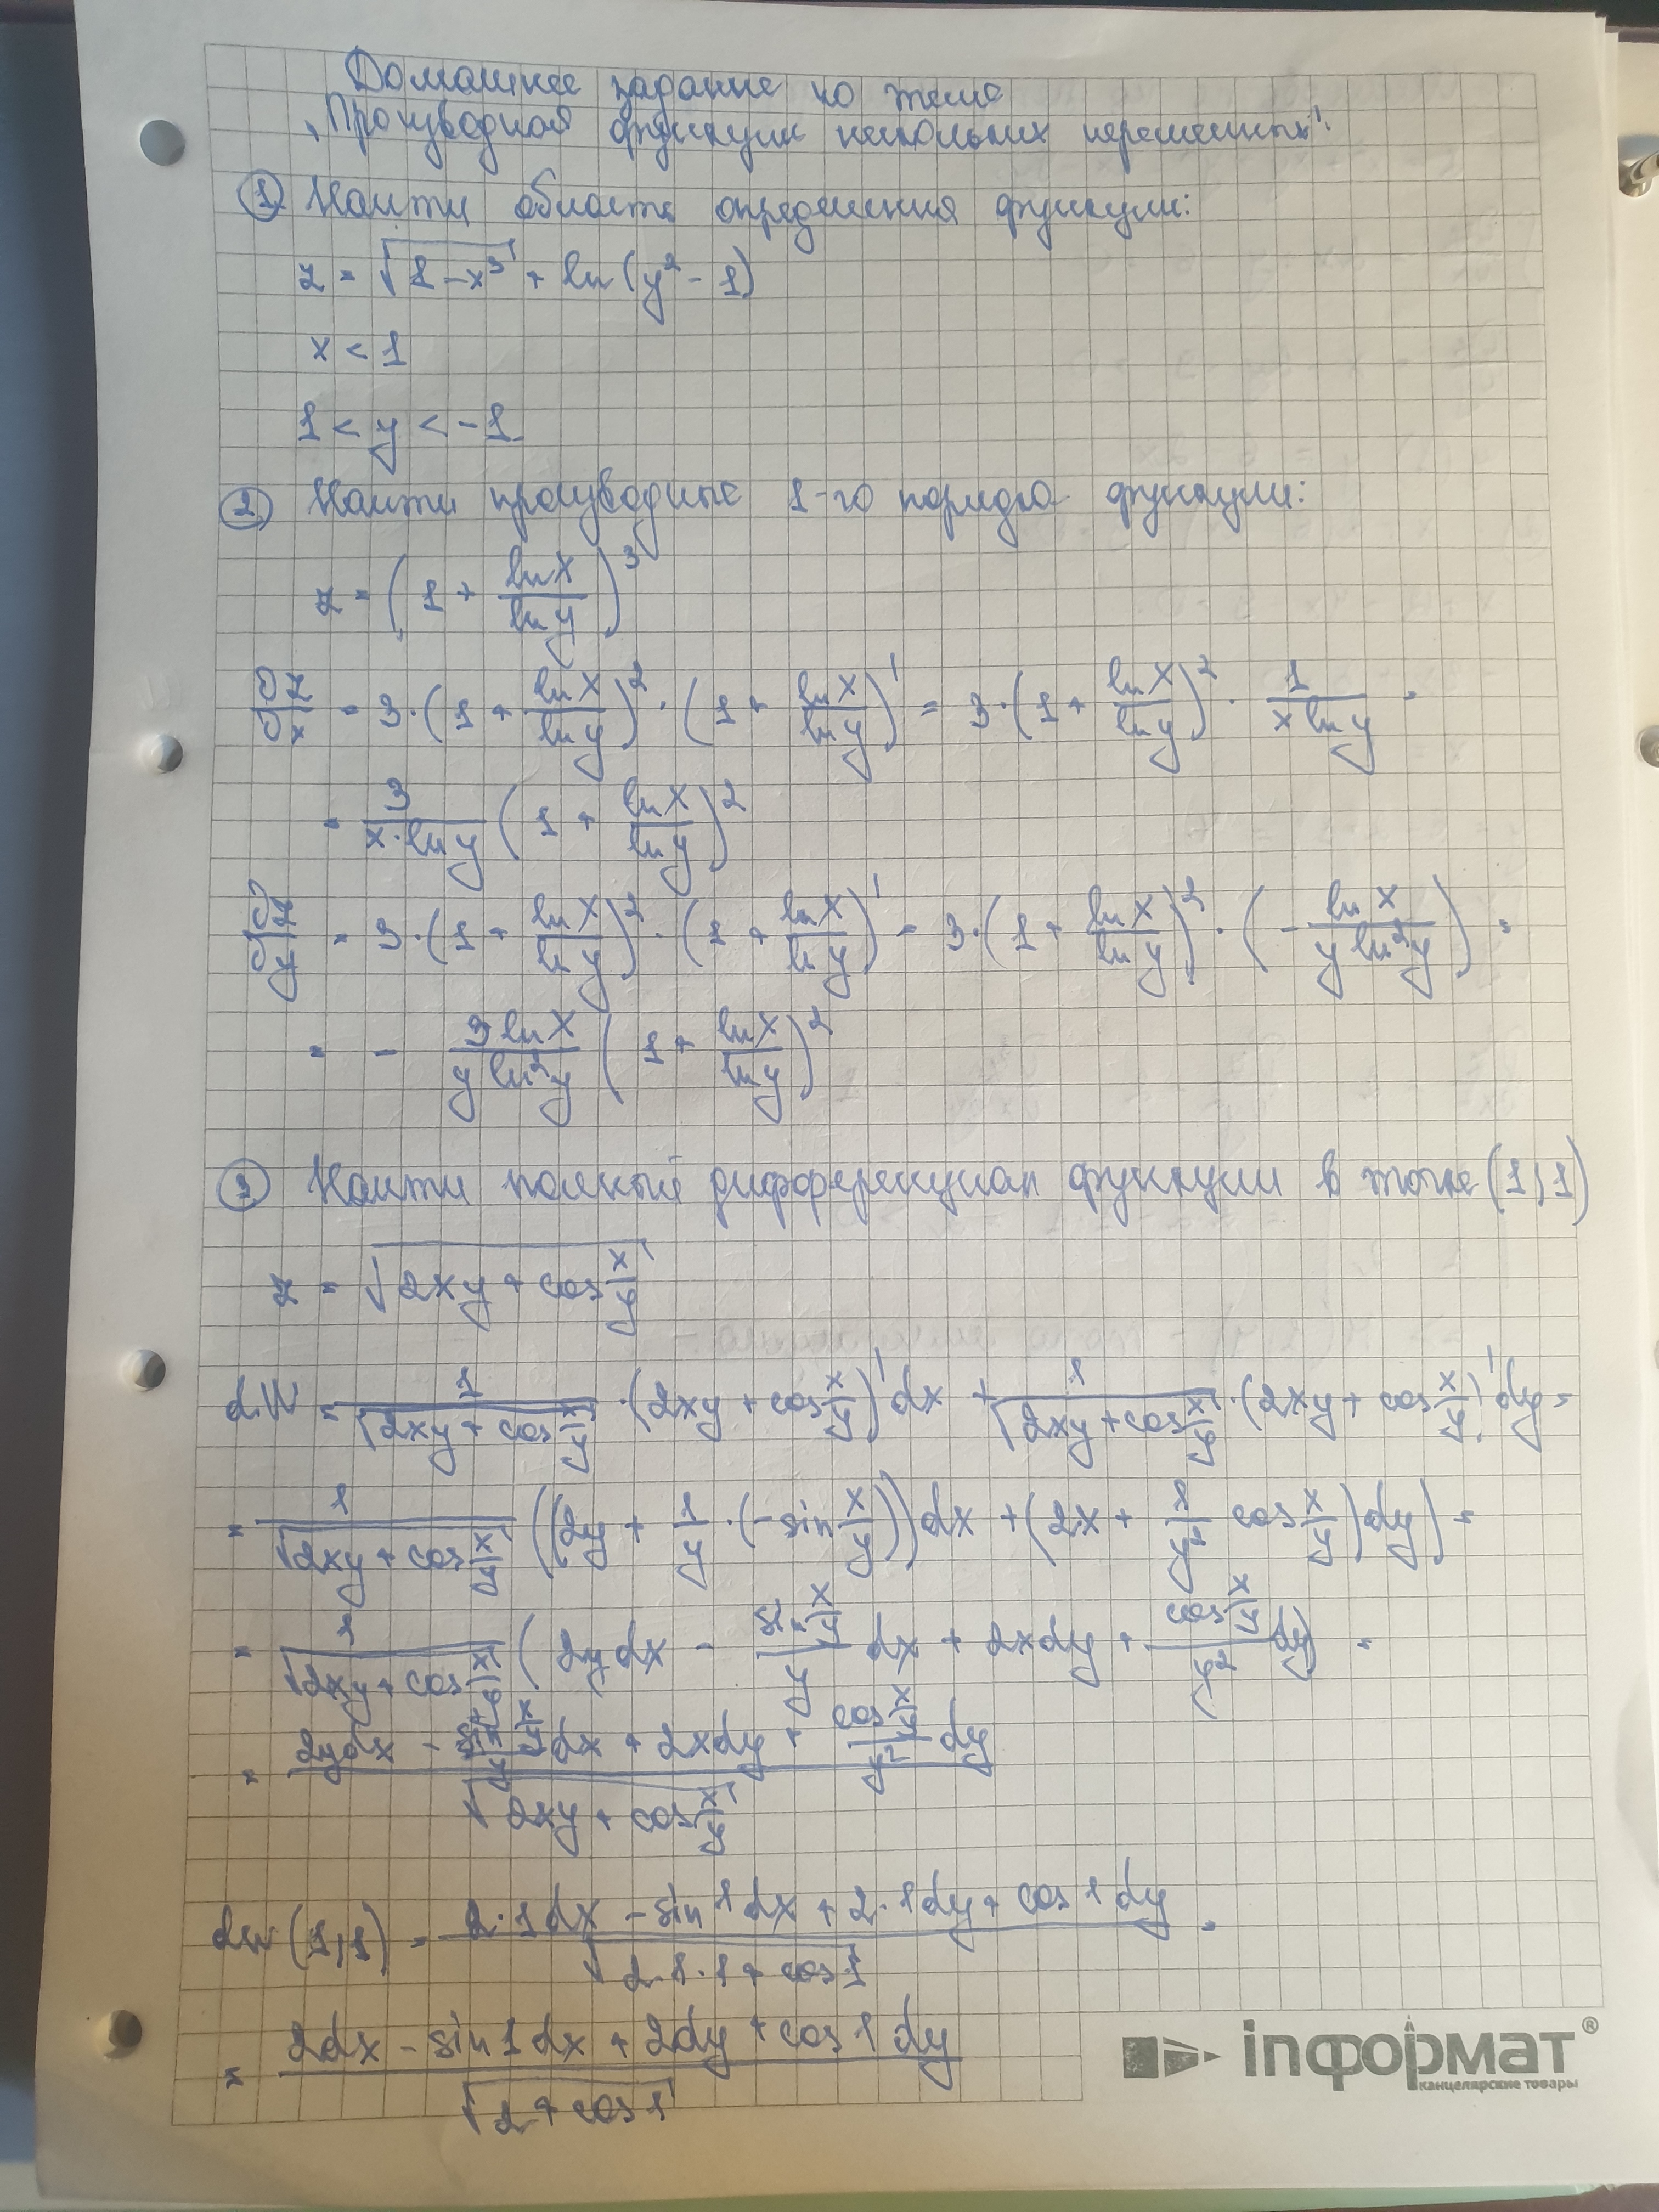 Домашнее задание по теме
„Производная функции нескольких переменных".
① Найти область определения функции:
z = √(1 - x³) + ln(y² - 1)
x < 1
1 < y < -1
② Найти производные 1-го порядка функции:
z = (1 + ln x / ln y)³
∂z/∂x = 3·(1 + ln x / ln y)² · (1 + ln x / ln y)' = 3·(1 + ln x / ln y)² · 1/(x ln y) =
= 3/(x·ln y) (1 + ln x / ln y)²
∂z/∂y = 3·(1 + ln x / ln y)² · (1 + ln x / ln y)' = 3·(1 + ln x / ln y)² · (- ln x/(y ln² y)) =
= - 3 ln x/(y ln² y) (1 + ln x / ln y)²
③ Найти полный дифференциал функции в точке (1,1)
z = √(2xy + cos x/y)
dW = 1/√(2xy + cos x/y) · (2xy + cos x/y)' dx + 1/√(2xy + cos x/y) · (2xy + cos x/y)' dy =
= 1/√(2xy + cos x/y) ((2y + 1/y · (-sin x/y)) dx + (2x + 1/y² cos x/y) dy) =
= 1/√(2xy + cos x/y) (2y dx - (sin x/y)/y dx + 2x dy + (cos x/y)/y² dy) =
= (2y dx - (sin x/y)/y dx + 2x dy + (cos x/y)/y² dy)/√(2xy + cos x/y)
dw(1,1) = (2·1 dx - sin 1 dx + 2·1 dy + cos 1 dy)/√(2·1·1 + cos 1) =
= (2dx - sin 1 dx + 2dy + cos 1 dy)/√(2 + cos 1)
inформат®
канцелярские товары